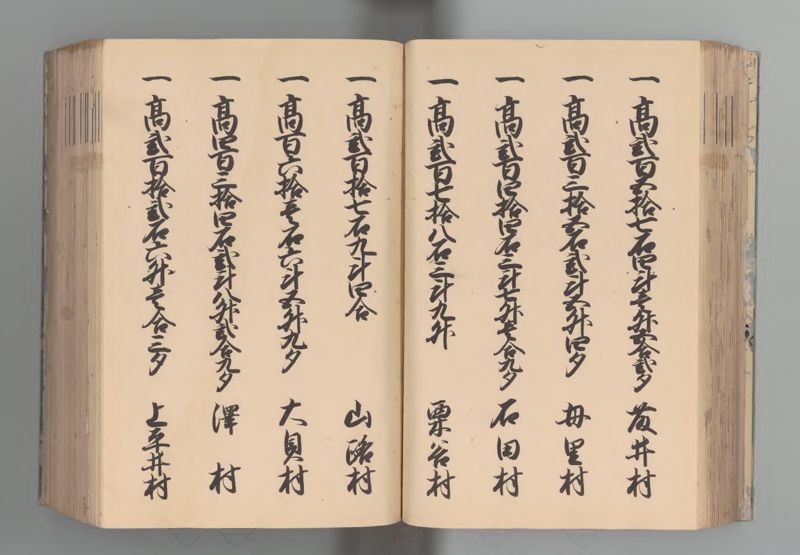 一高弐百五拾七石四斗壱升五合弐夕 藤井村
一高弐百三拾五石弐斗五升四夕 母里村
一高弐百四拾四石三斗七升壱合九夕 石田村
一高弐百七拾八石三斗九升 栗谷村
一高弐百拾七石九斗四合 山路村
一高百六拾壱石六斗五升九夕 大貝村
一高四百三拾四石弐斗八升弐合九夕 澤村
一高弐百拾弐石六升壱合三夕 上平井村